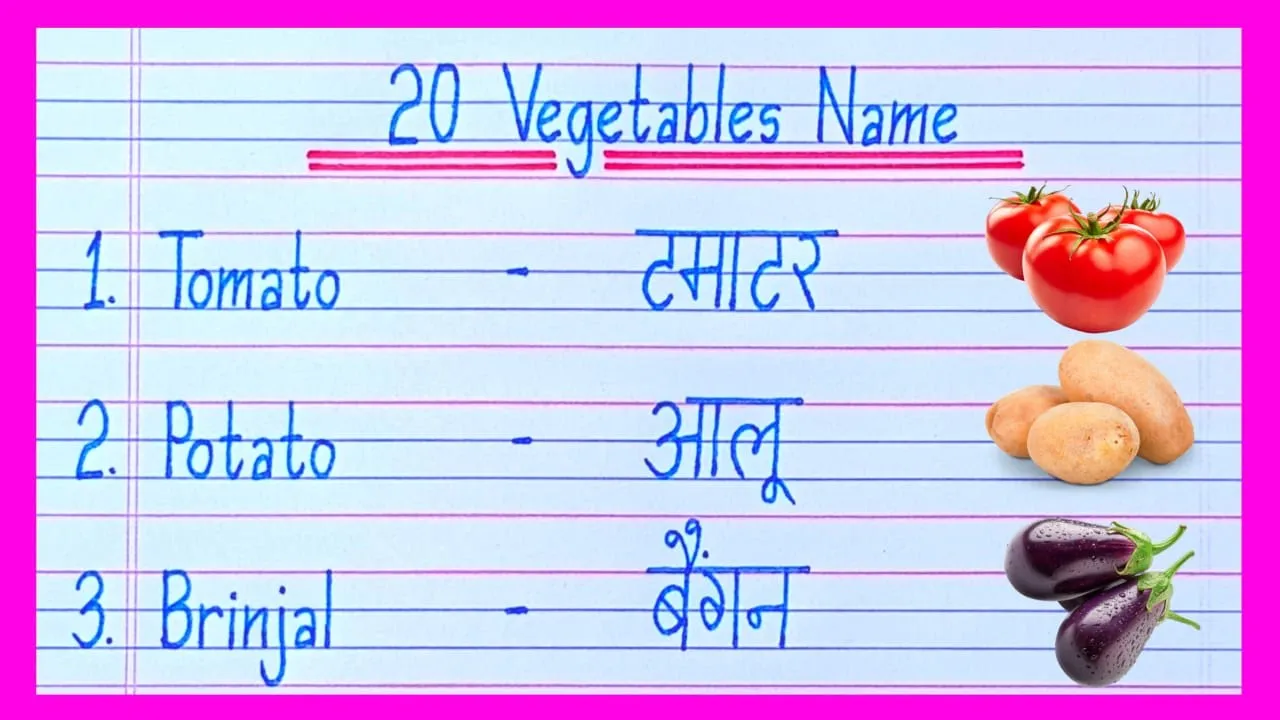 20 Vegetables Name
1. Tomato - टमाटर
2. Potato - आलू
3. Brinjal - बैंगन